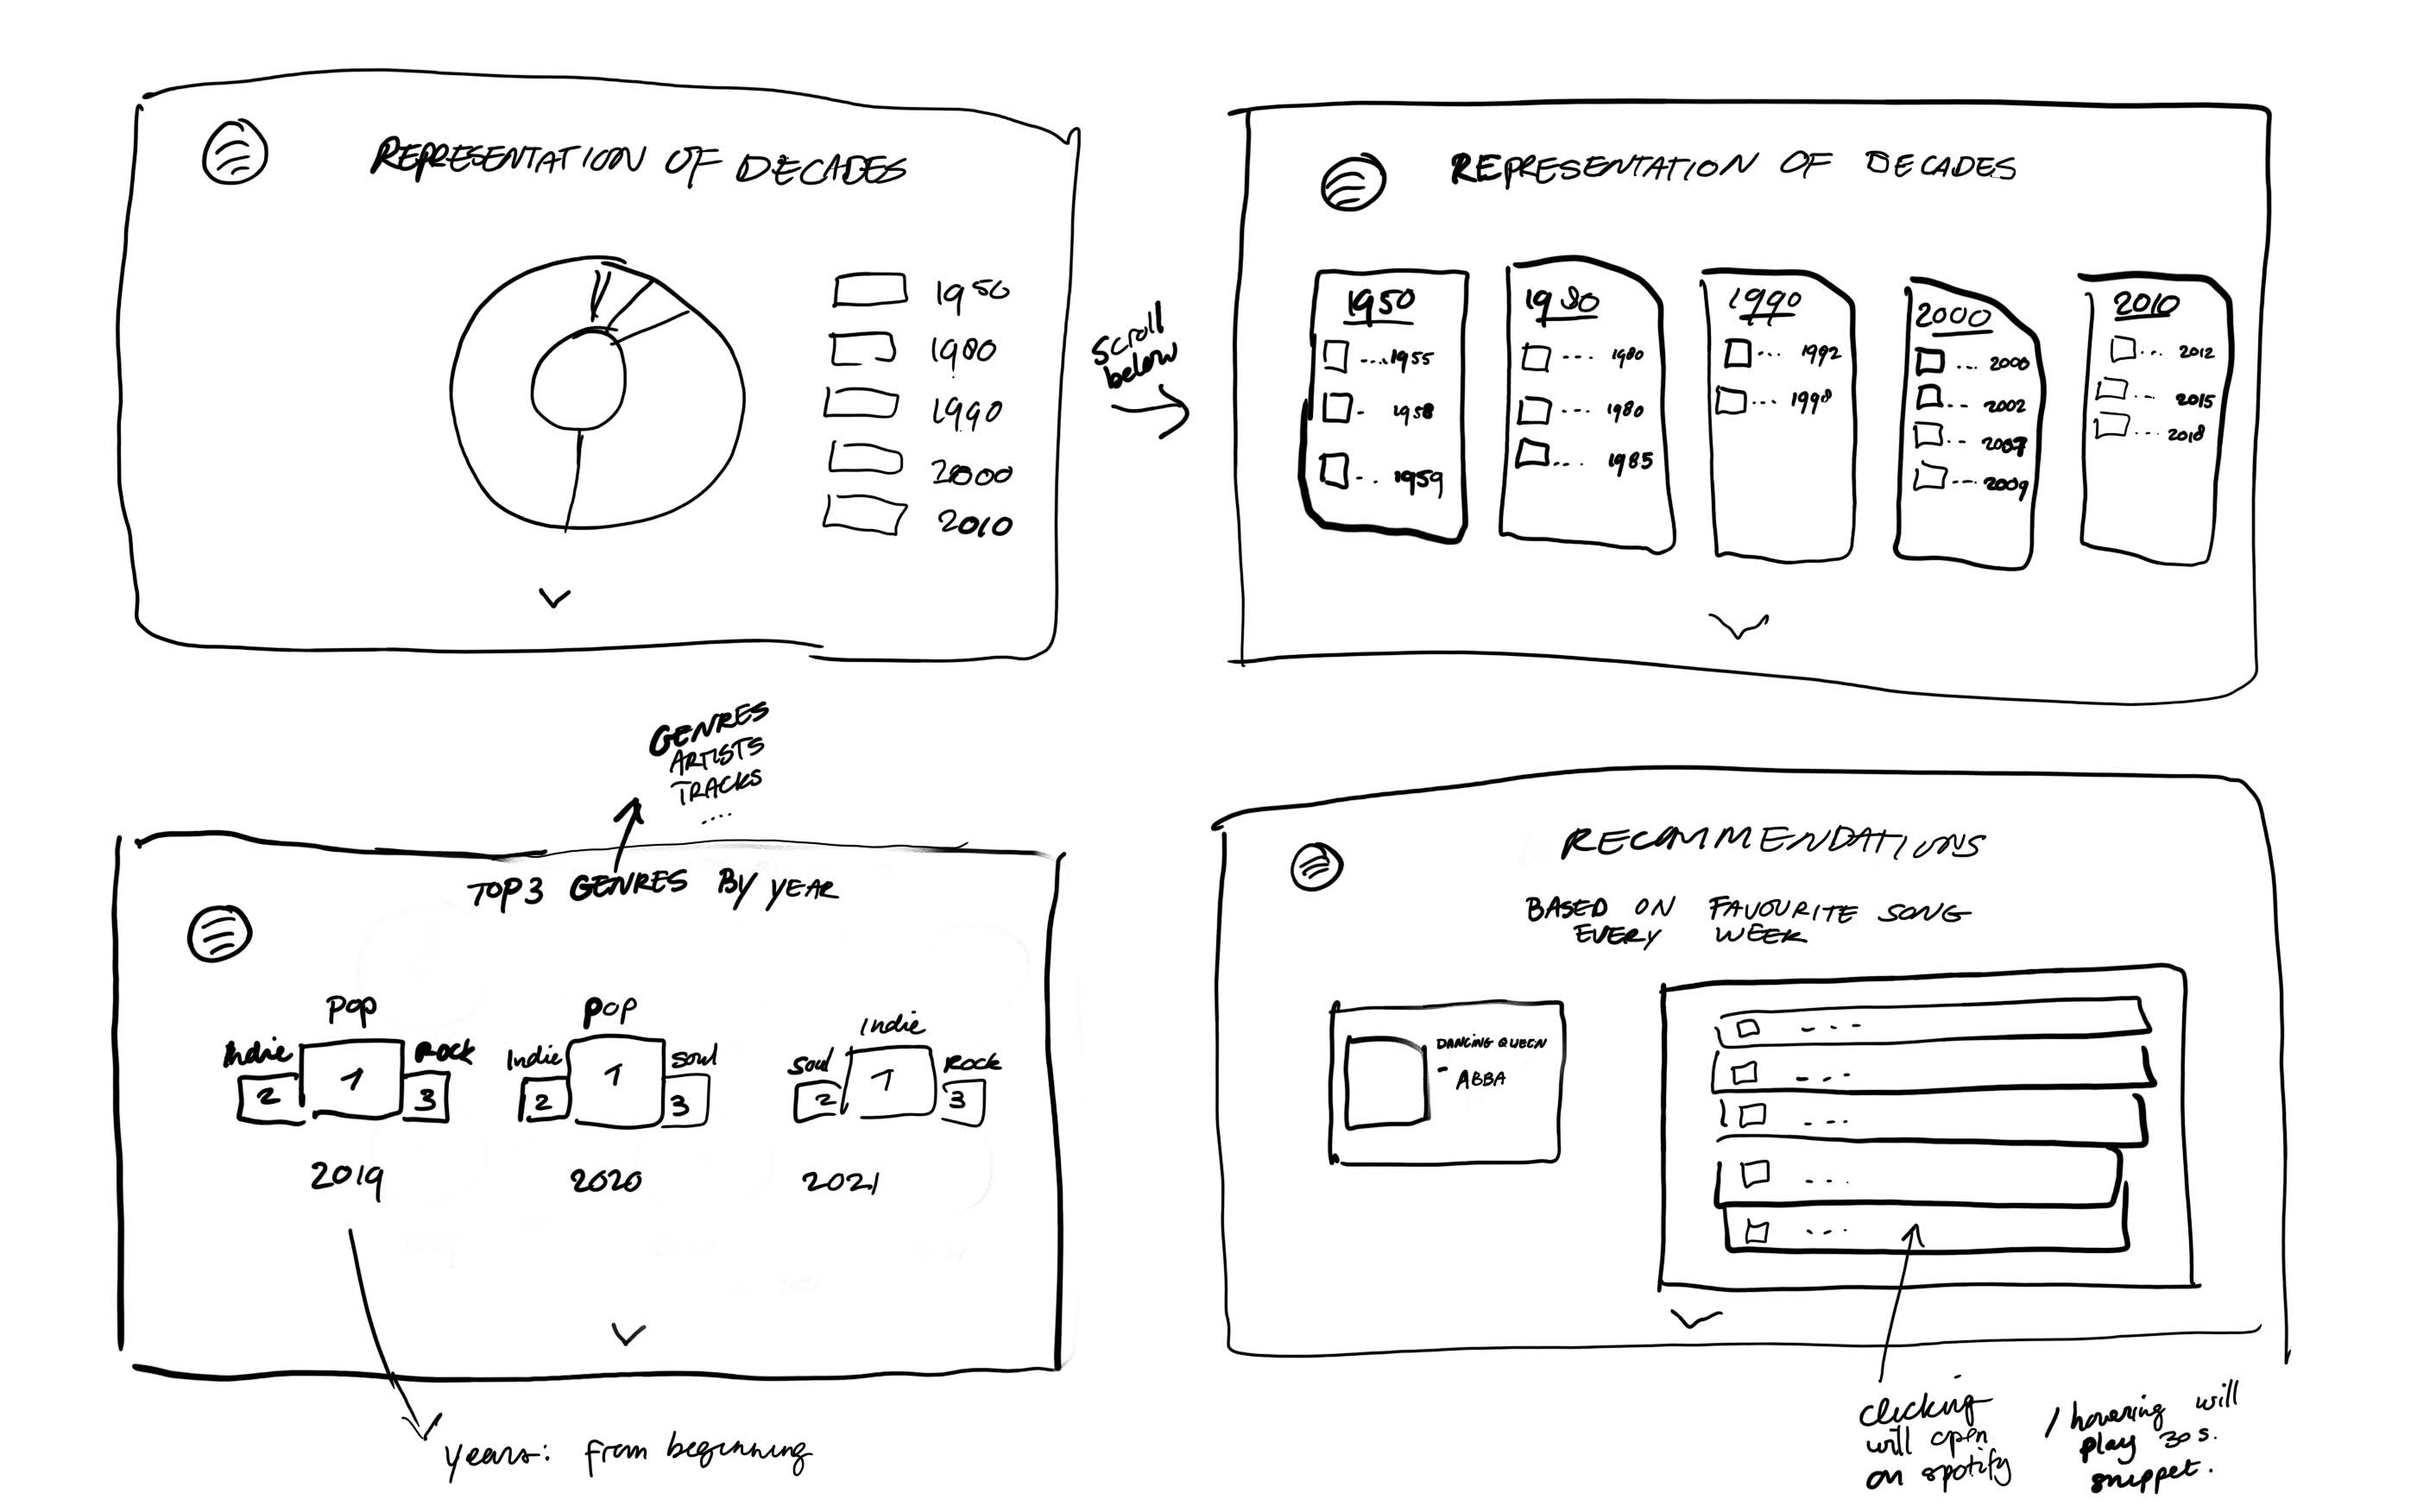 REPRESENTATION OF DECADES
1950
1980
1990
2000
2010
scroll
below
REPRESENTATION OF DECADES
1950
... 1955
- 1958
.. 1959
1980
... 1980
... 1980
... 1985
1990
... 1992
... 1998
2000
... 2000
.. 2002
.. 2007
... 2009
2010
... 2012
.. 2015
... 2018
GENRES
ARTISTS
TRACKS
....
TOP 3 GENRES BY YEAR
Pop
Indie
Rock
2
1
3
2019
Pop
Indie
Soul
2
1
3
2020
Indie
Soul
Rock
2
1
3
2021
years: from beginning
RECOMMENDATIONS
BASED ON FAVOURITE SONG
EVERY WEEK
DANCING QUEEN
- ABBA
- - -
- - -
- - -
- - -
- - -
clicking
will open
on spotify
/ hovering will
play 30 s.
snippet.